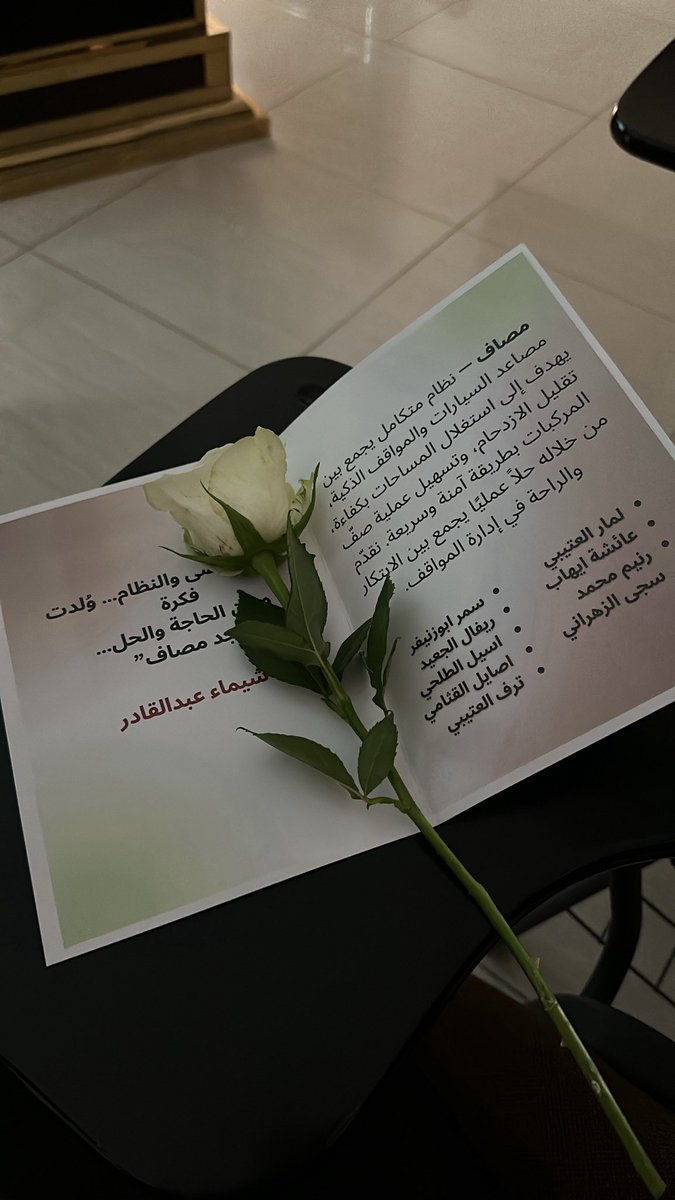 مصاف – نظام متكامل يجمع بين
مصاعد السيارات والمواقف الذكية،
يهدف إلى استغلال المساحات بكفاءة،
تقليل الازدحام، وتسهيل عملية صفّ
المركبات بطريقة آمنة وسريعة. نقدّم
من خلاله حلاً عمليًا يجمع بين الابتكار
والراحة في إدارة المواقف.
لمار العتيبي
عائشة ايهاب
رنيم محمد
سجى الزهراني
سمر ابوزنيفر
ريفال الجعيد
اسيل الطلحي
اصايل القثامي
ترف العتيبي
والنظام... وُلدت
فكرة
الحاجة والحل...
مصاف”
شيماء عبدالقادر